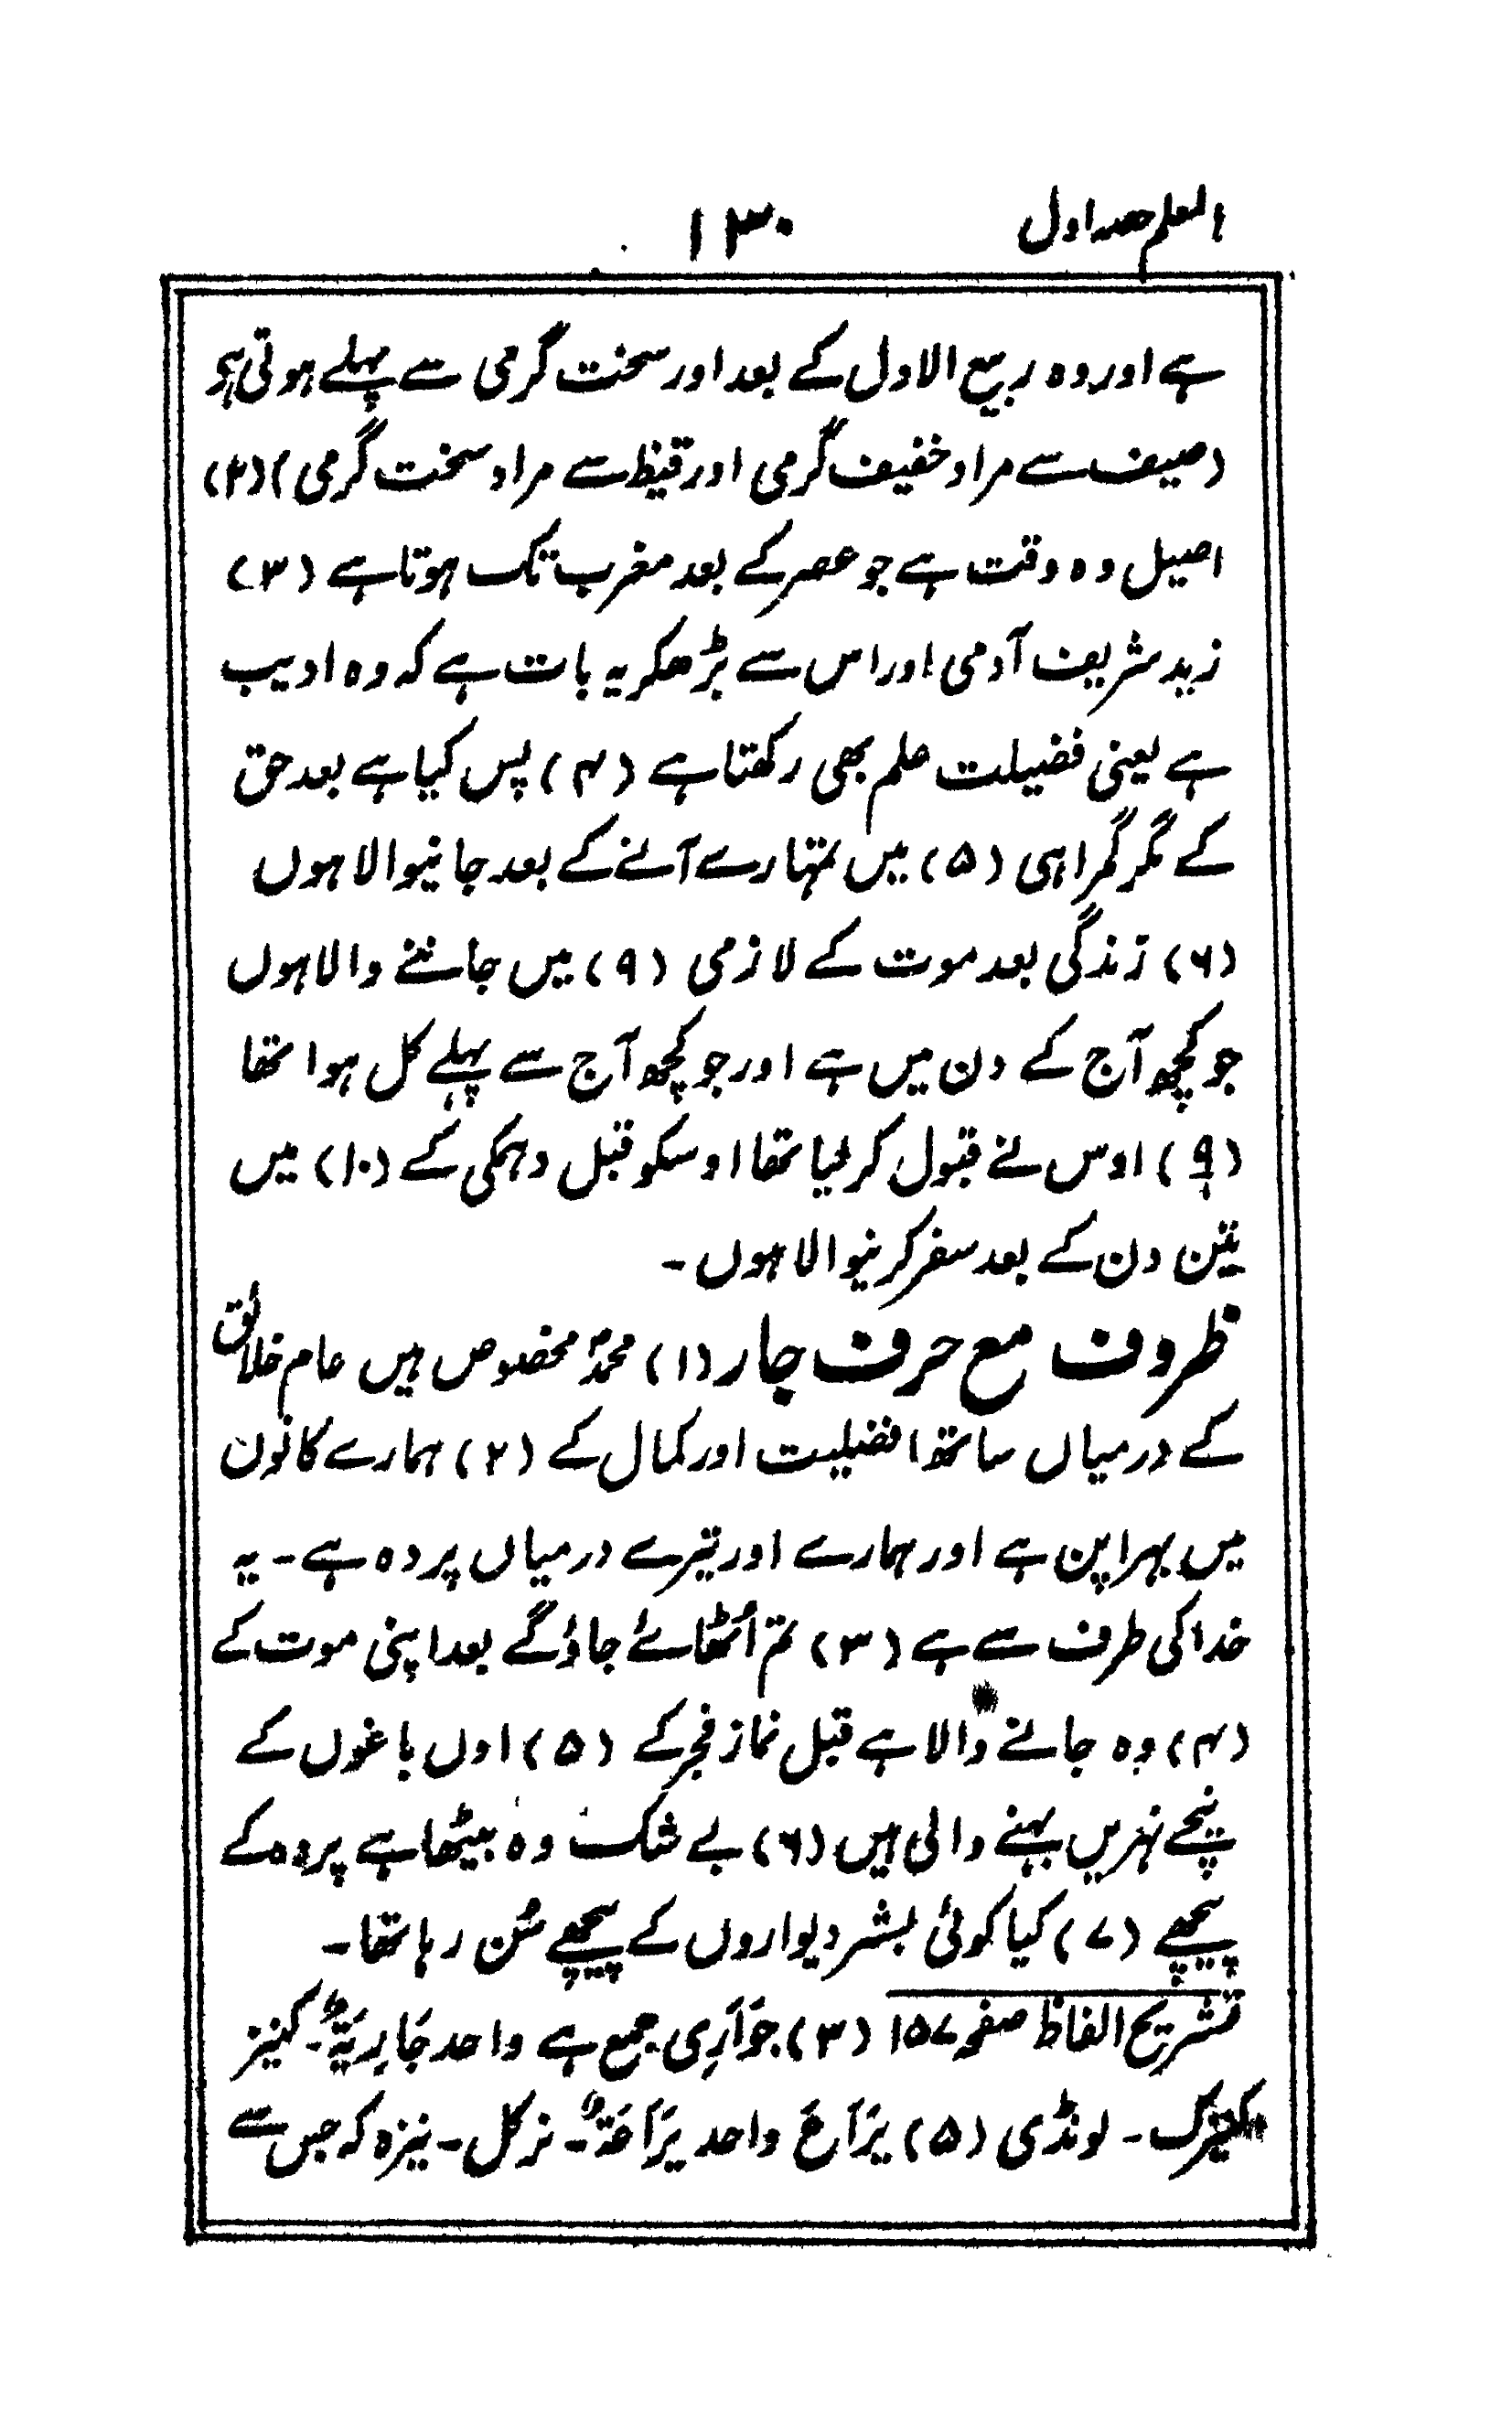 المعلم حصہ اول ۱۳۰
ہے اور وہ ربیع الاول کے بعد اور سخت گرمی سے پہلے ہوتی ہی
(صیف سے مراد خفیف گرمی اور قیظ سے مراد سخت گرمی) (۲)
اصیل وہ وقت ہے جو عصر کے بعد مغرب تک ہوتا ہے (۳)
زید شریف آدمی اور اس سے بڑھکر یہ بات ہے کہ وہ ادیب
ہے یعنی فضیلت علم بھی رکھتا ہے (۴) پس کیا ہے بعد حق
کے مگر گمراہی (۵) میں تمہارے آنے کے بعد جانیوالا ہوں
(۶) زندگی بعد موت کے لازمی (۹) میں جاننے والا ہوں
جو کچھ آج کے دن میں ہے اور جو کچھ آج سے پہلے کل ہوا تھا
(۹) اوس نے قبول کر لیا تھا اوسکو قبل دہمکی کے (۱۰) میں
تین دن کے بعد سفر کرنیوالا ہوں۔
ظروف مع حرف جار (۱) محمدؐ مخصوص ہیں عام خلائق
کے درمیاں ساتھ افضلیت اور کمال کے (۲) ہمارے کانون
میں بہرا پن ہے اور ہمارے اور تیرے درمیاں پردہ ہے۔ یہ
خدا کی طرف سے ہے (۳) تم اُٹھائے جاؤگے بعد اپنی موت کے
(۴) وہ جانے والا ہے قبل نماز فجر کے (۵) اول باغوں کے
نیچے نہریں بہنے والی ہیں (۶) بے شک وہ بیٹھا ہے پردہ کے
پیچھے (۷) کیا کوئی بشر دیواروں کے پیچھے سُن رہا تھا۔
تشریح الفاظ صفحہ ۱۵۷ (۳) جَوَارِی جمع ہے واحد جَارِیَۃٌ۔ کنیز
کنیزک۔ لونڈی (۵) یَرَاعَ واحد یَرَاعَۃٌ۔ نرکل۔ نیزہ کہ جس سے